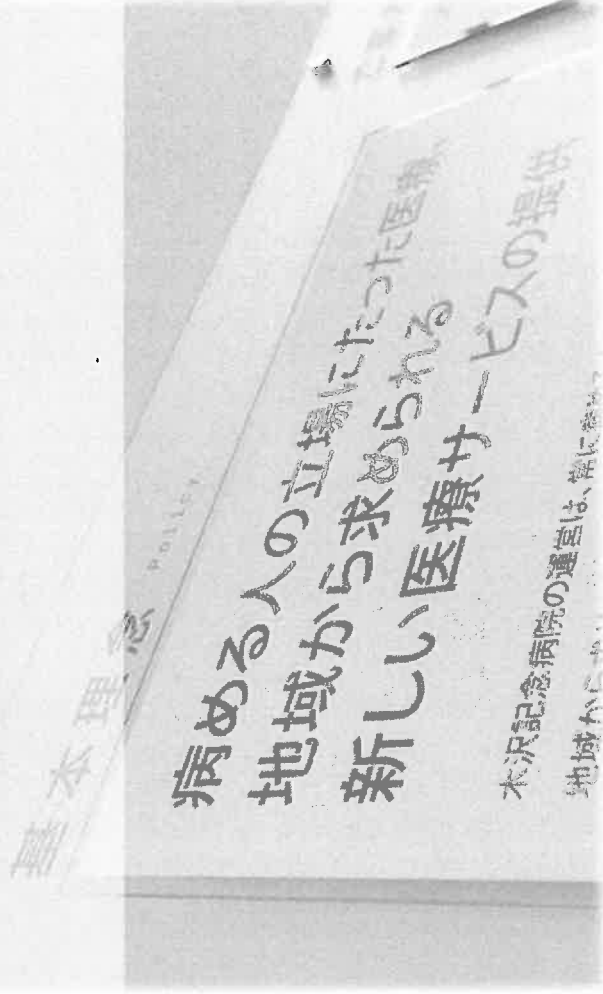 基本理念 POLICY
病める人の立場にたった医療、
地域から求められる
新しい医療サービスの提供
木沢記念病院の運営は、常に病める
地域から